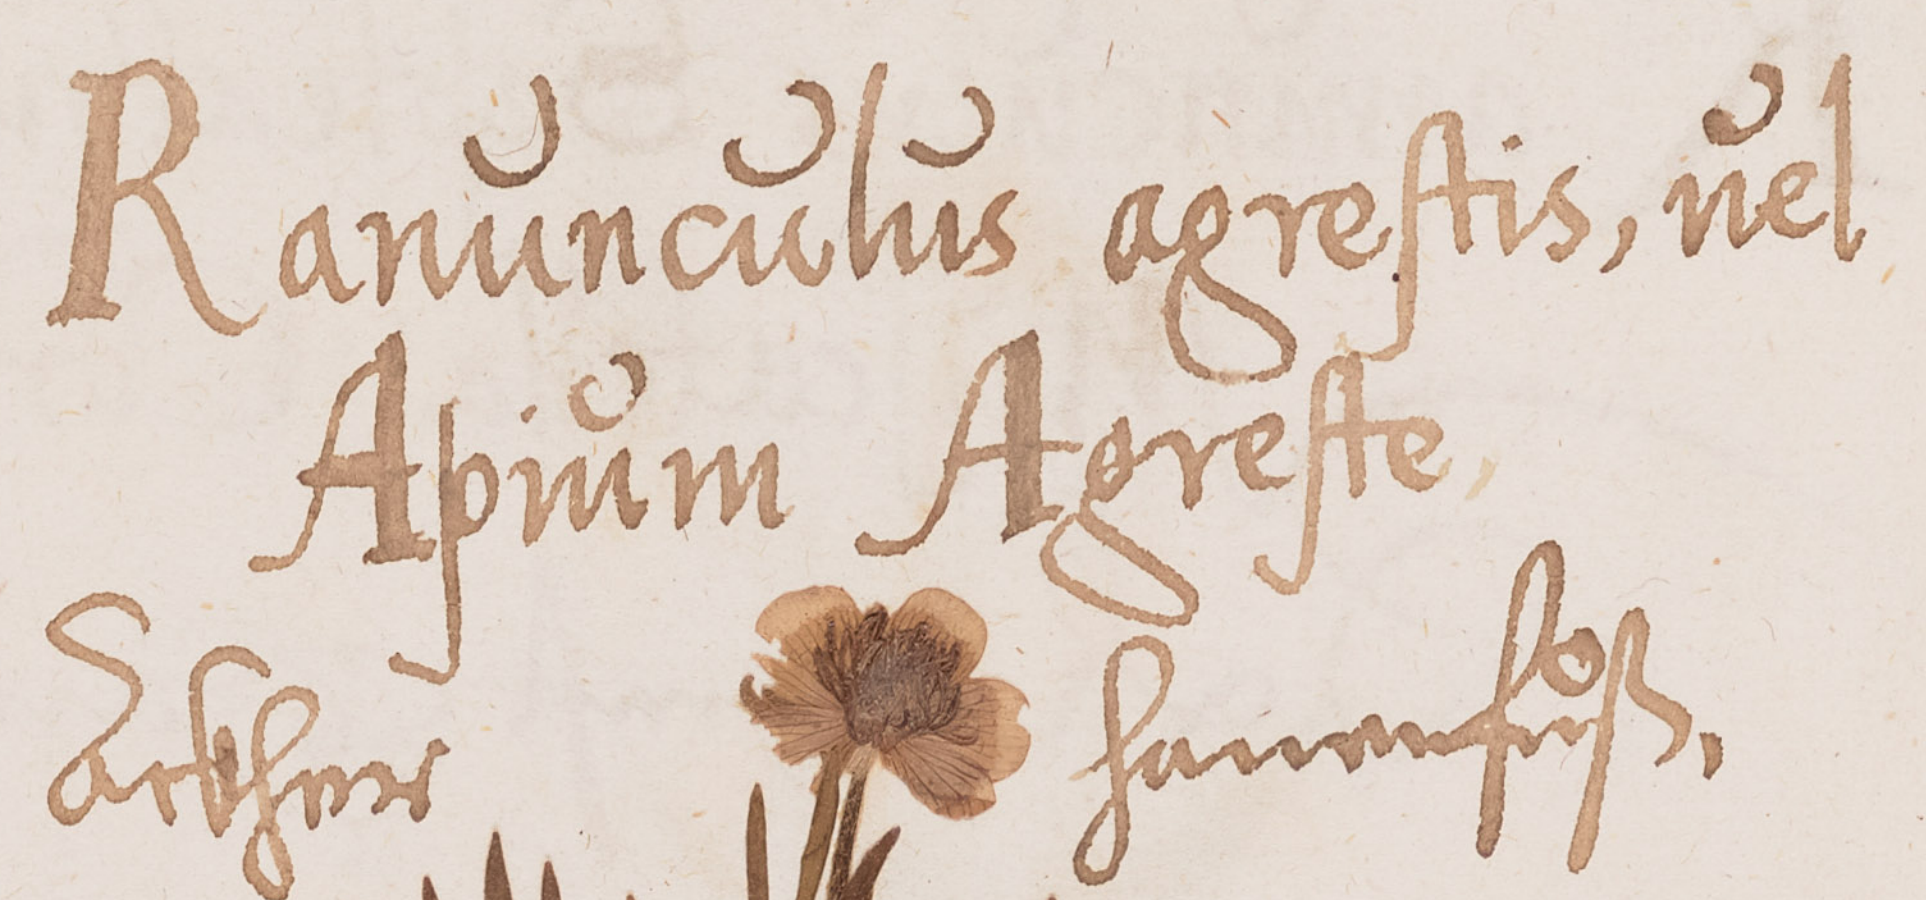 Ranunculus agrestis, uel
Apium Agreste,
hanenfuoß,